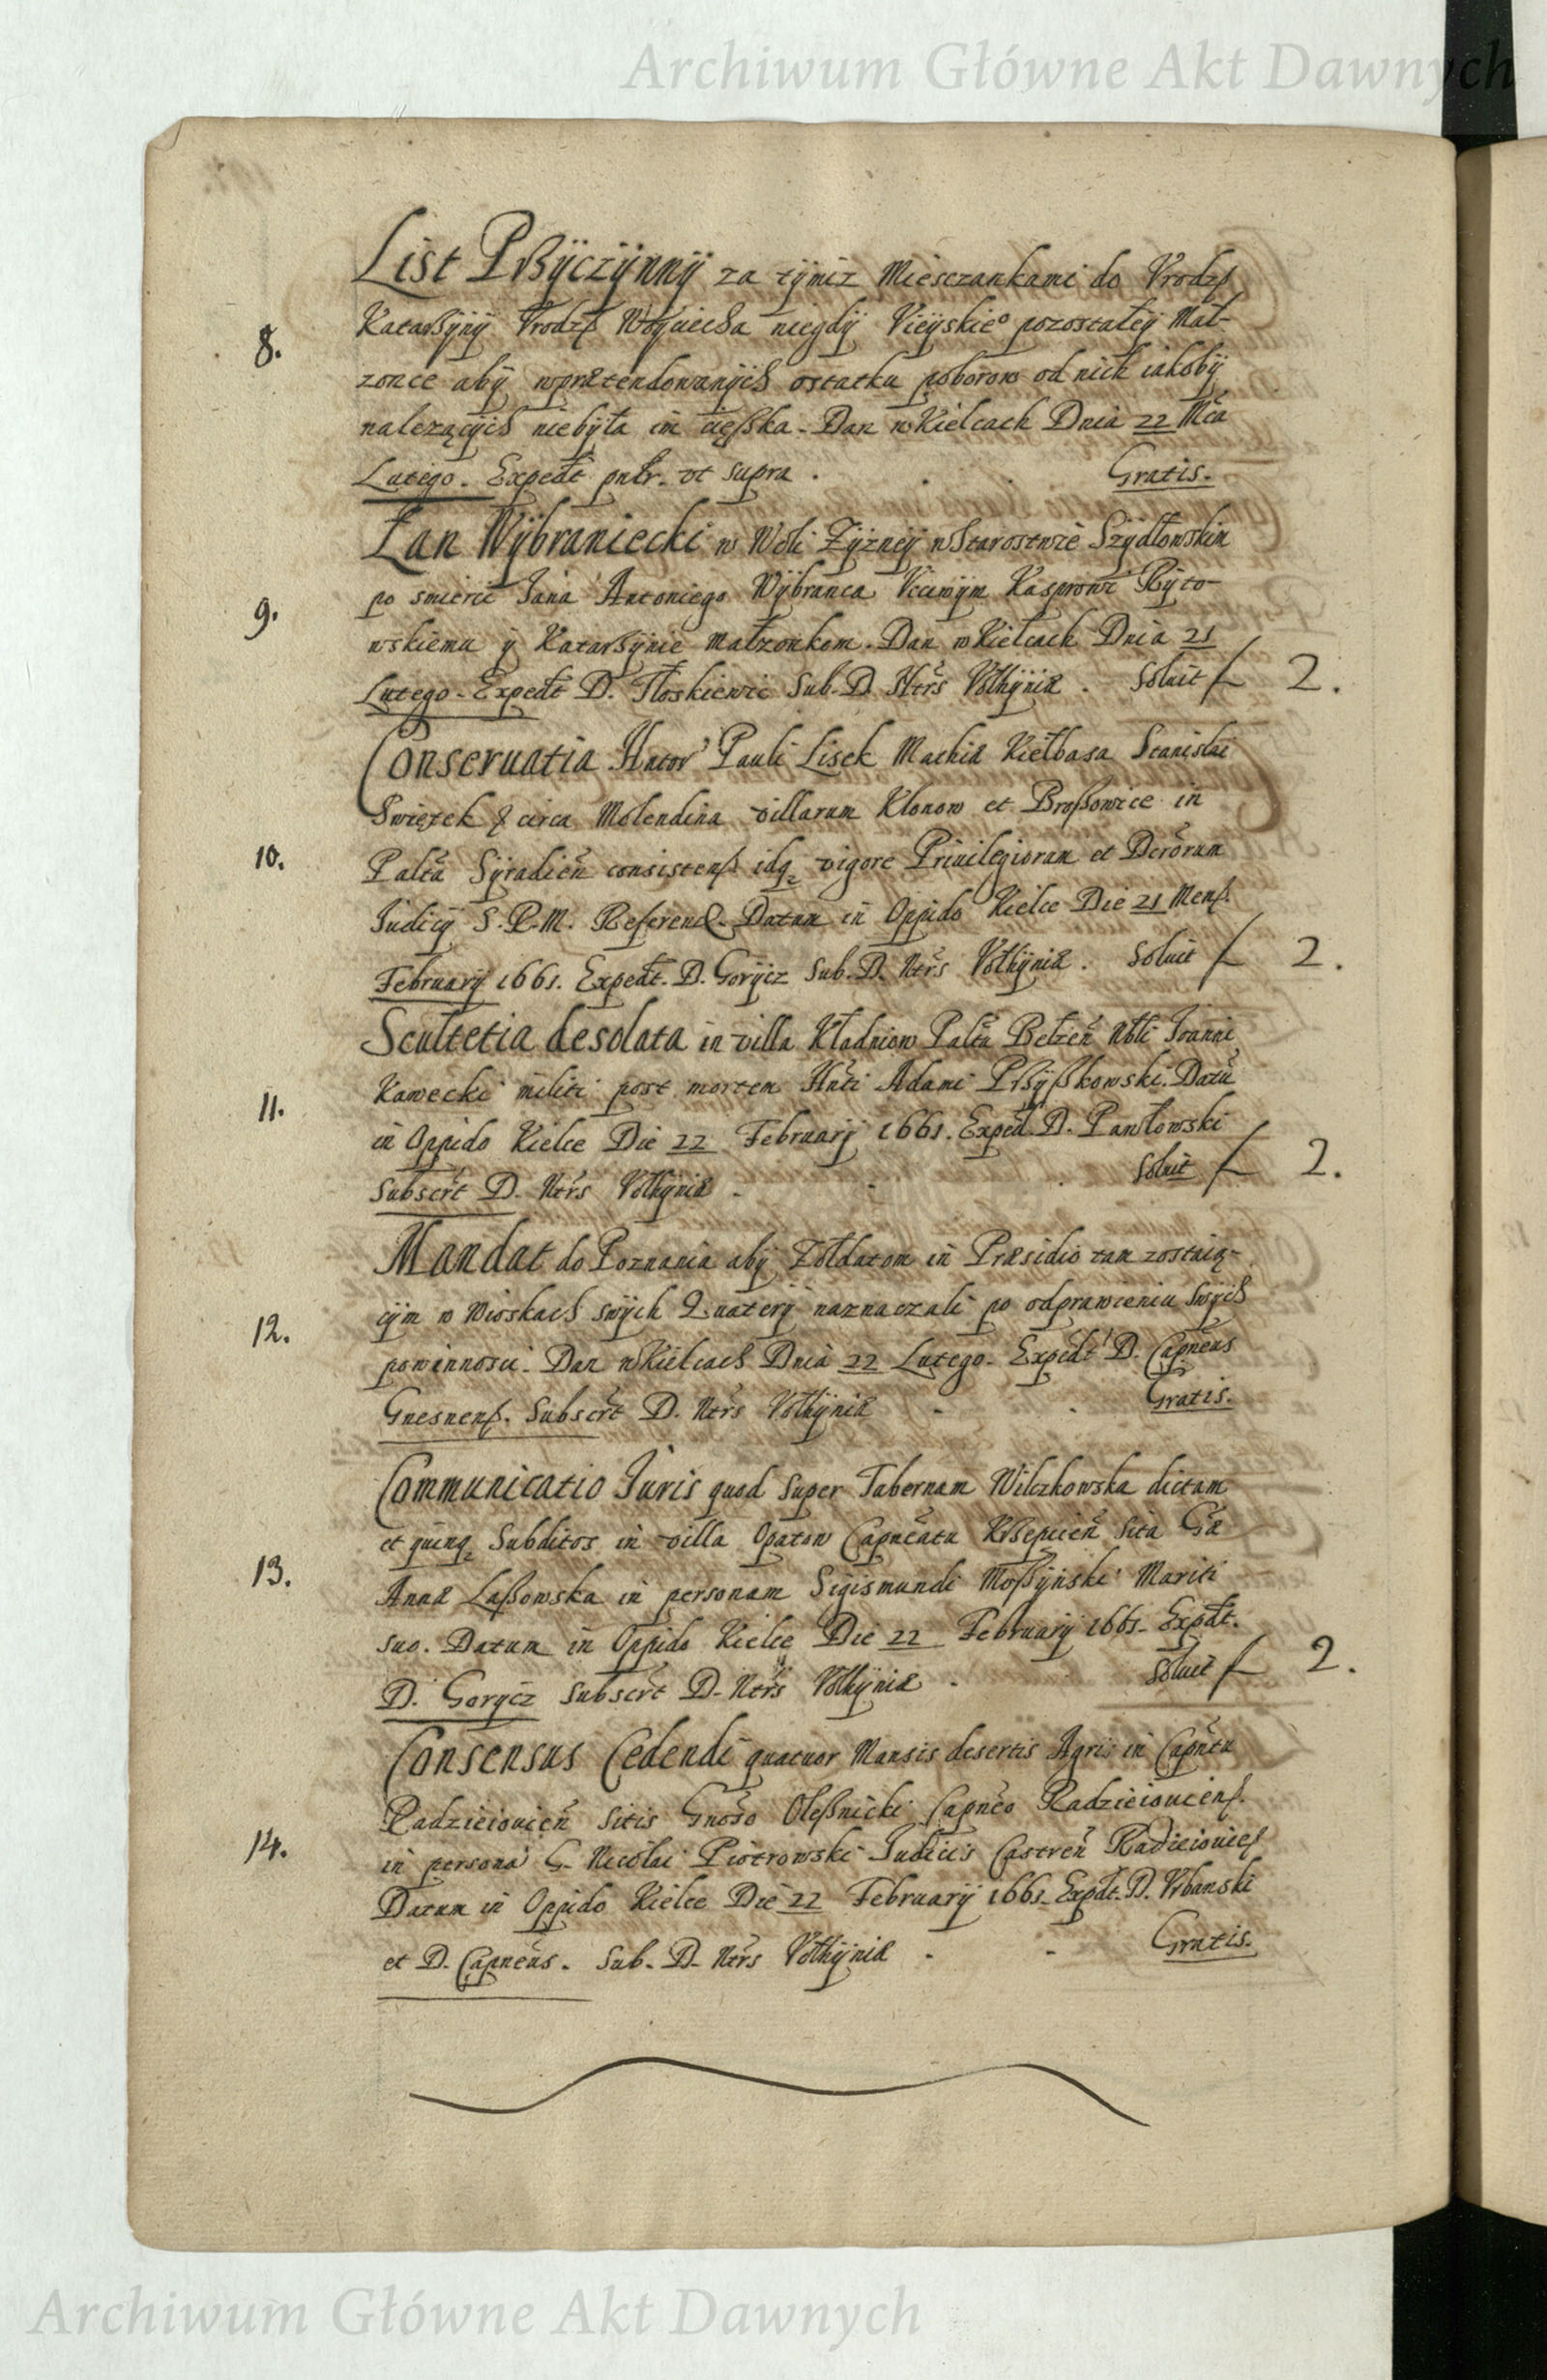 Archiwum Główne Akt Dawnych
List Przÿczÿnnÿ za tÿmiz Miesczankami do Vrodz
8. Katarzÿnÿ Vrodz Woÿciecha niegdÿ Vieÿskieo pozostałeÿ Mał-
zonce abÿ wprætendowanÿch ostatku poborow od nich iakobÿ
nalezącÿch niebÿła im cięszka. Dan w Kielcach Dnia 22 Mca
Lutego. Expedt pntr. vt supra. Gratis.
Łan Wÿbraniecki w Woli Zÿzneÿ w Starostwie Szÿdłowskim
9. po smierci Jana Antoniego Wÿbranca Vcciwÿm Kasprowi Rÿto-
wskiemu ÿ Katarzÿnie małzonkom. Dan w Kielcach Dnia 21
Lutego. Expedt D. Tłoskiewic Sub. D. Ntrs Volhÿniæ. Soluit f 2.
Conseruatia Hntor Pauli Lisek Mathiæ Kiełbasa Stanislai
Swiętek & circa Molendina villarum Klonow et Broszowice in
10. Paltu Sÿradien consistens idq vigore Priuilegiorum et Dcrorum
Judicÿ S. R. M. Referend. Datum in Oppido Kielce Die 21 Mens.
Februarÿ 1661. Expedt. D. Gorÿcz Sub. D. Ntrs Volhÿniæ. Soluit f 2.
Scultetia desolata in villa Kładniow Paltu Bełzen Nbli Joanni
11. Kawecki militi post mortem Hnti Adami Przÿszkowski. Datu
in Oppido Kielce Die 22 Februarÿ 1661. Exped. D. Pawłowski
Subscrt D. Ntrs Volhÿniæ. Soluit f 2.
Mandat do Poznania abÿ Zołdatom in Præsidio tam zostaią-
12. cÿm w wioskach swÿch Quaterÿ naznaczali po odprawieniu swÿch
powinnosci. Dan w Kielcach Dnia 22 Lutego. Expedt D. Capneus
Gnesnens. Subscrt D. Ntrs Volhÿniæ Gratis.
Communicatio Juris quod super Tabernam Wilczkowska dictam
et quinq Subditos in villa Opatow Capneatu Krzepicen sita Gæ
13. Annæ Laszowska in personam Sigismundi Moszÿnski Mariti
suo. Datum in Oppido Kielce Die 22 Februarÿ 1661. Expdt.
D. Gorÿcz Subscrt D. Ntrs Volhÿniæ. Soluit f 2.
Consensus Cedendi quatuor Mansis desertis Agris in Capntu
Radzieiouien sitis Gnoso Oleśnicki Capneo Radzieiouiens.
14. in persona G. Nicolai Piotrowski Judicis Castren Radzieiouies
Datum in Oppido Kielce Die 22 Februarÿ 1661. Expdt. D. Vrbanski
et D. Capneus. Sub. D. Ntrs Volhÿniæ. Gratis.
Archiwum Główne Akt Dawnych